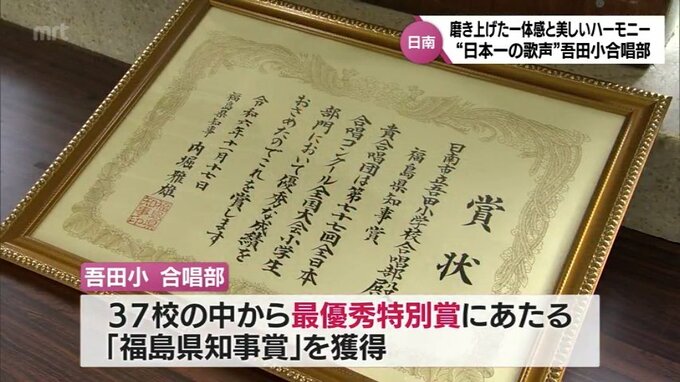 mrt
日南
磨き上げた一体感と美しいハーモニー
“日本一の歌声”吾田小合唱部
賞状
日南市立吾田小学校合唱部殿
福島県知事賞
貴合唱団は第七十七回全日本
合唱コンクール全国大会小学生
部門において優秀な成績を
おさめたのでこれを賞します
令和六年十一月十七日
福島県知事 内堀雅雄
吾田小 合唱部
37校の中から最優秀特別賞にあたる
「福島県知事賞」を獲得